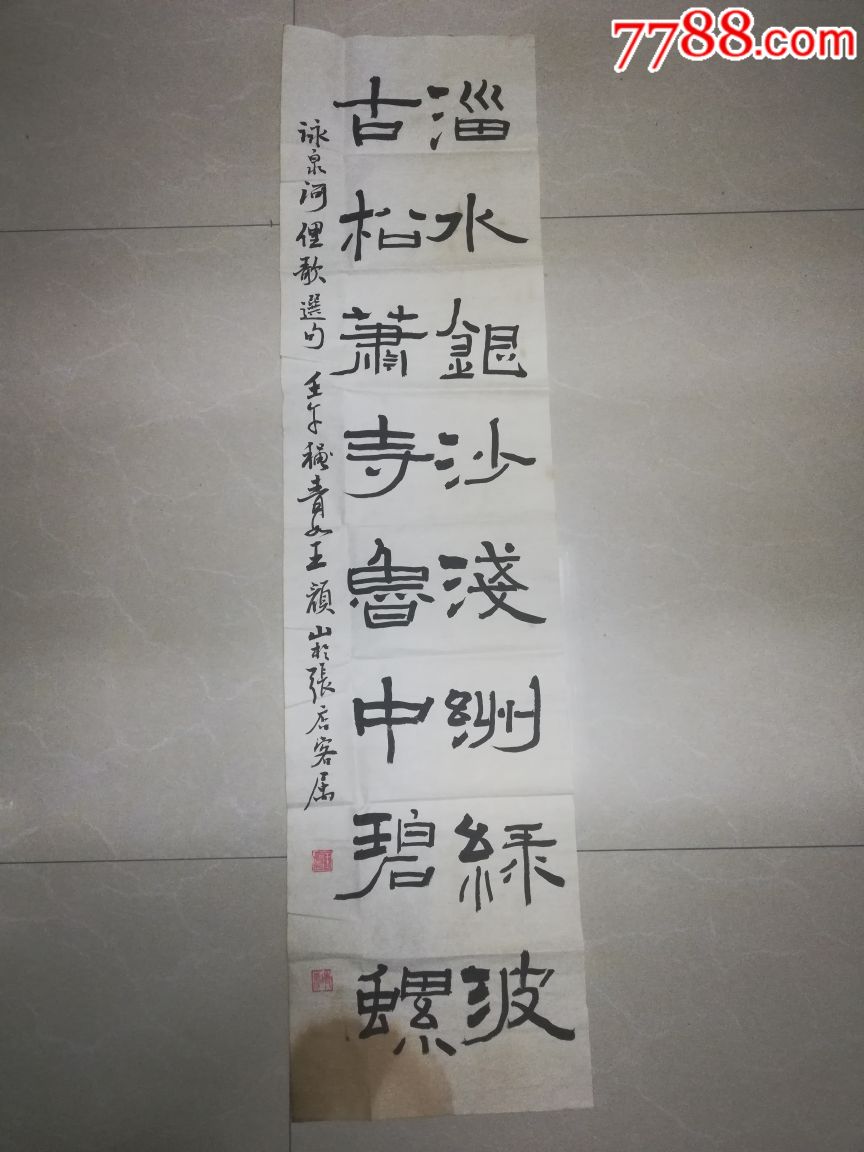 7788.com
淄水銀沙淺洲綠波
古松蕭寺魯中碧螺
詠泉河俚歌選句 壬午穐青 王顏山於張店客居